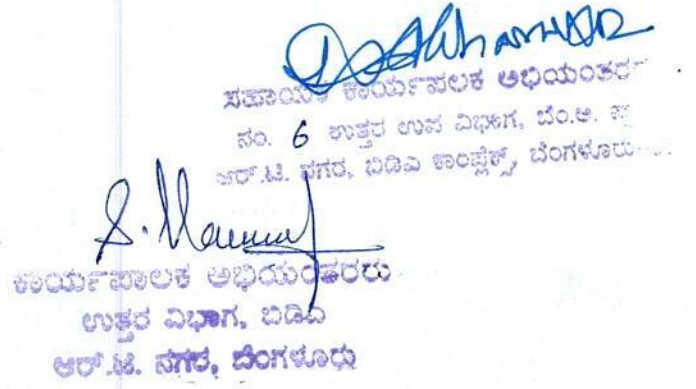 ಸಹಾಯಕ ಕಾರ್ಯಪಾಲಕ ಅಭಿಯಂತರ
ನಂ. 6 ಉತ್ತರ ಉಪ ವಿಭಾಗ, ಬೆಂ.ಅ.
ಆರ್.ಟಿ. ನಗರ, ಬಿಡಿಎ ಕಾಂಪ್ಲೆಕ್ಸ್, ಬೆಂಗಳೂರು
ಕಾರ್ಯಪಾಲಕ ಅಭಿಯಂತರರು
ಉತ್ತರ ವಿಭಾಗ, ಬಿಡಿಎ
ಆರ್.ಟಿ. ನಗರ, ಬೆಂಗಳೂರು